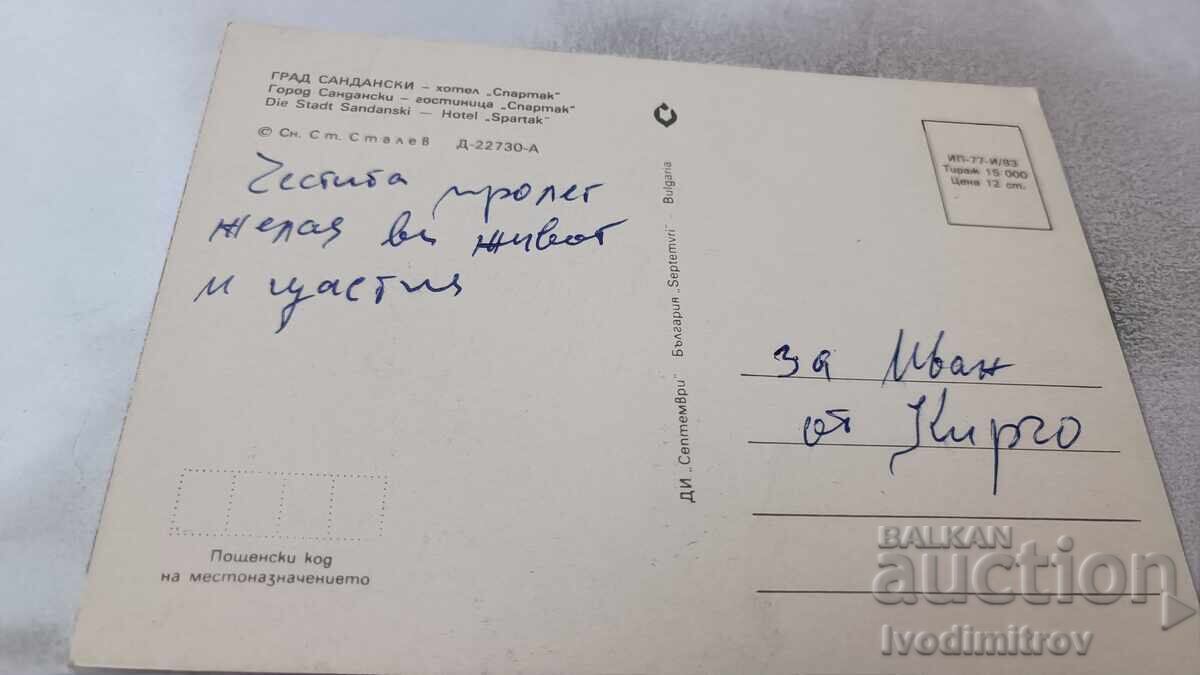 ГРАД САНДАНСКИ – хотел „Спартак“
Город Сандански – гостиница „Спартак“
Die Stadt Sandanski — Hotel „Spartak“
© Сн. Ст. Сталев Д-22730-А
Честита пролет
желая ви живот
и щастия
Пощенски код
на местоназначението
ДИ „Септември“ България „Septemvri“ - Bulgaria
ИП-77-И/83
Тираж 15 000
Цена 12 ст.
за Иван
от Кирчо
BALKAN
auction
Ivodimitrov